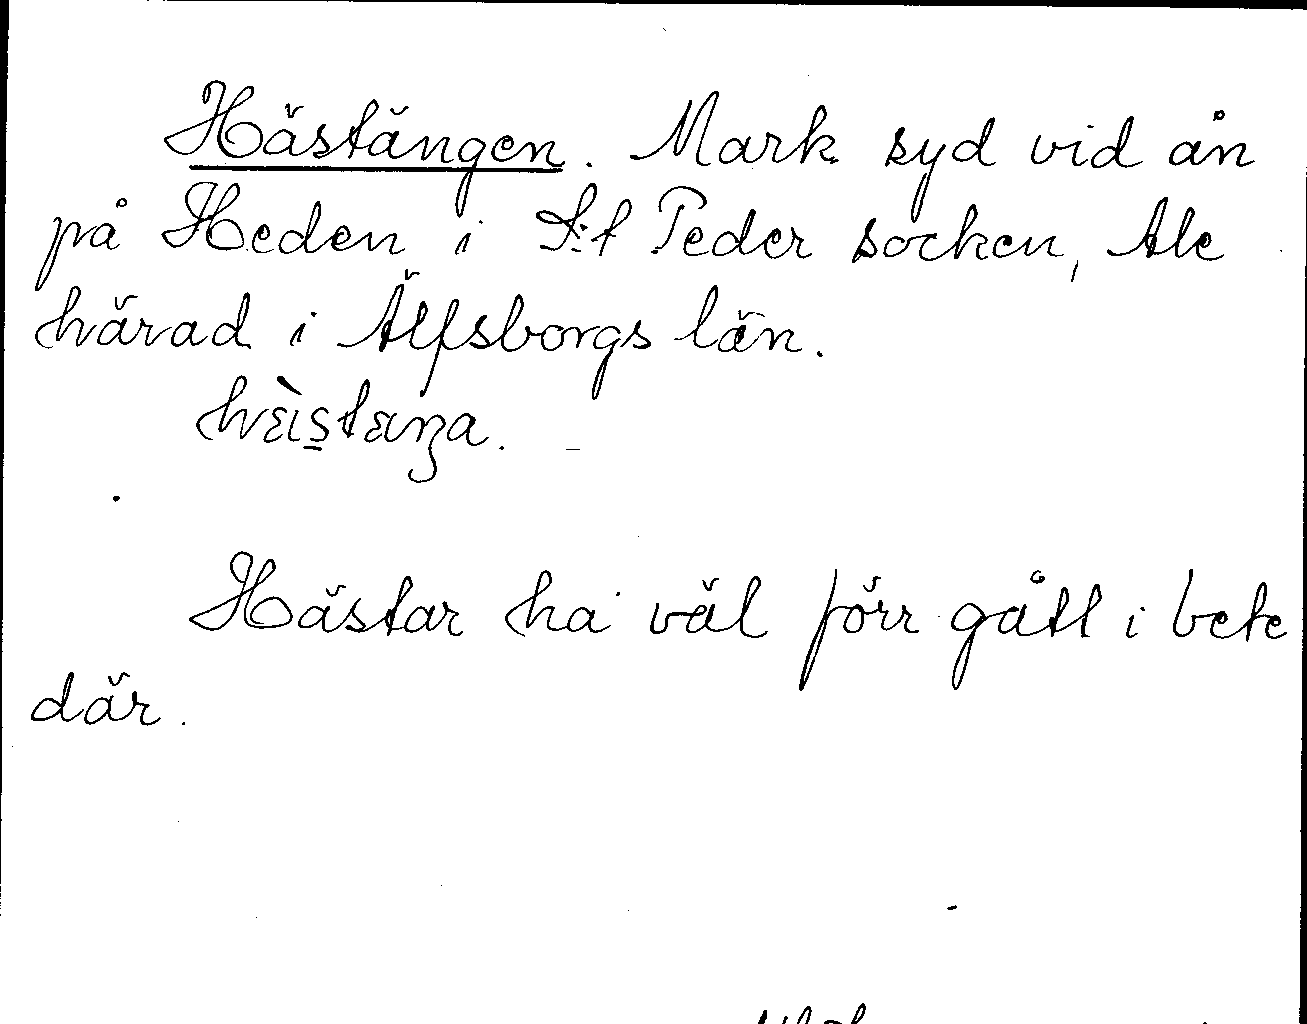 Hästängen. Mark syd vid ån
på Heden i S:t Peder socken, Ale
härad i Älfsborgs län.

Hästar ha väl förr gått i bete
där.